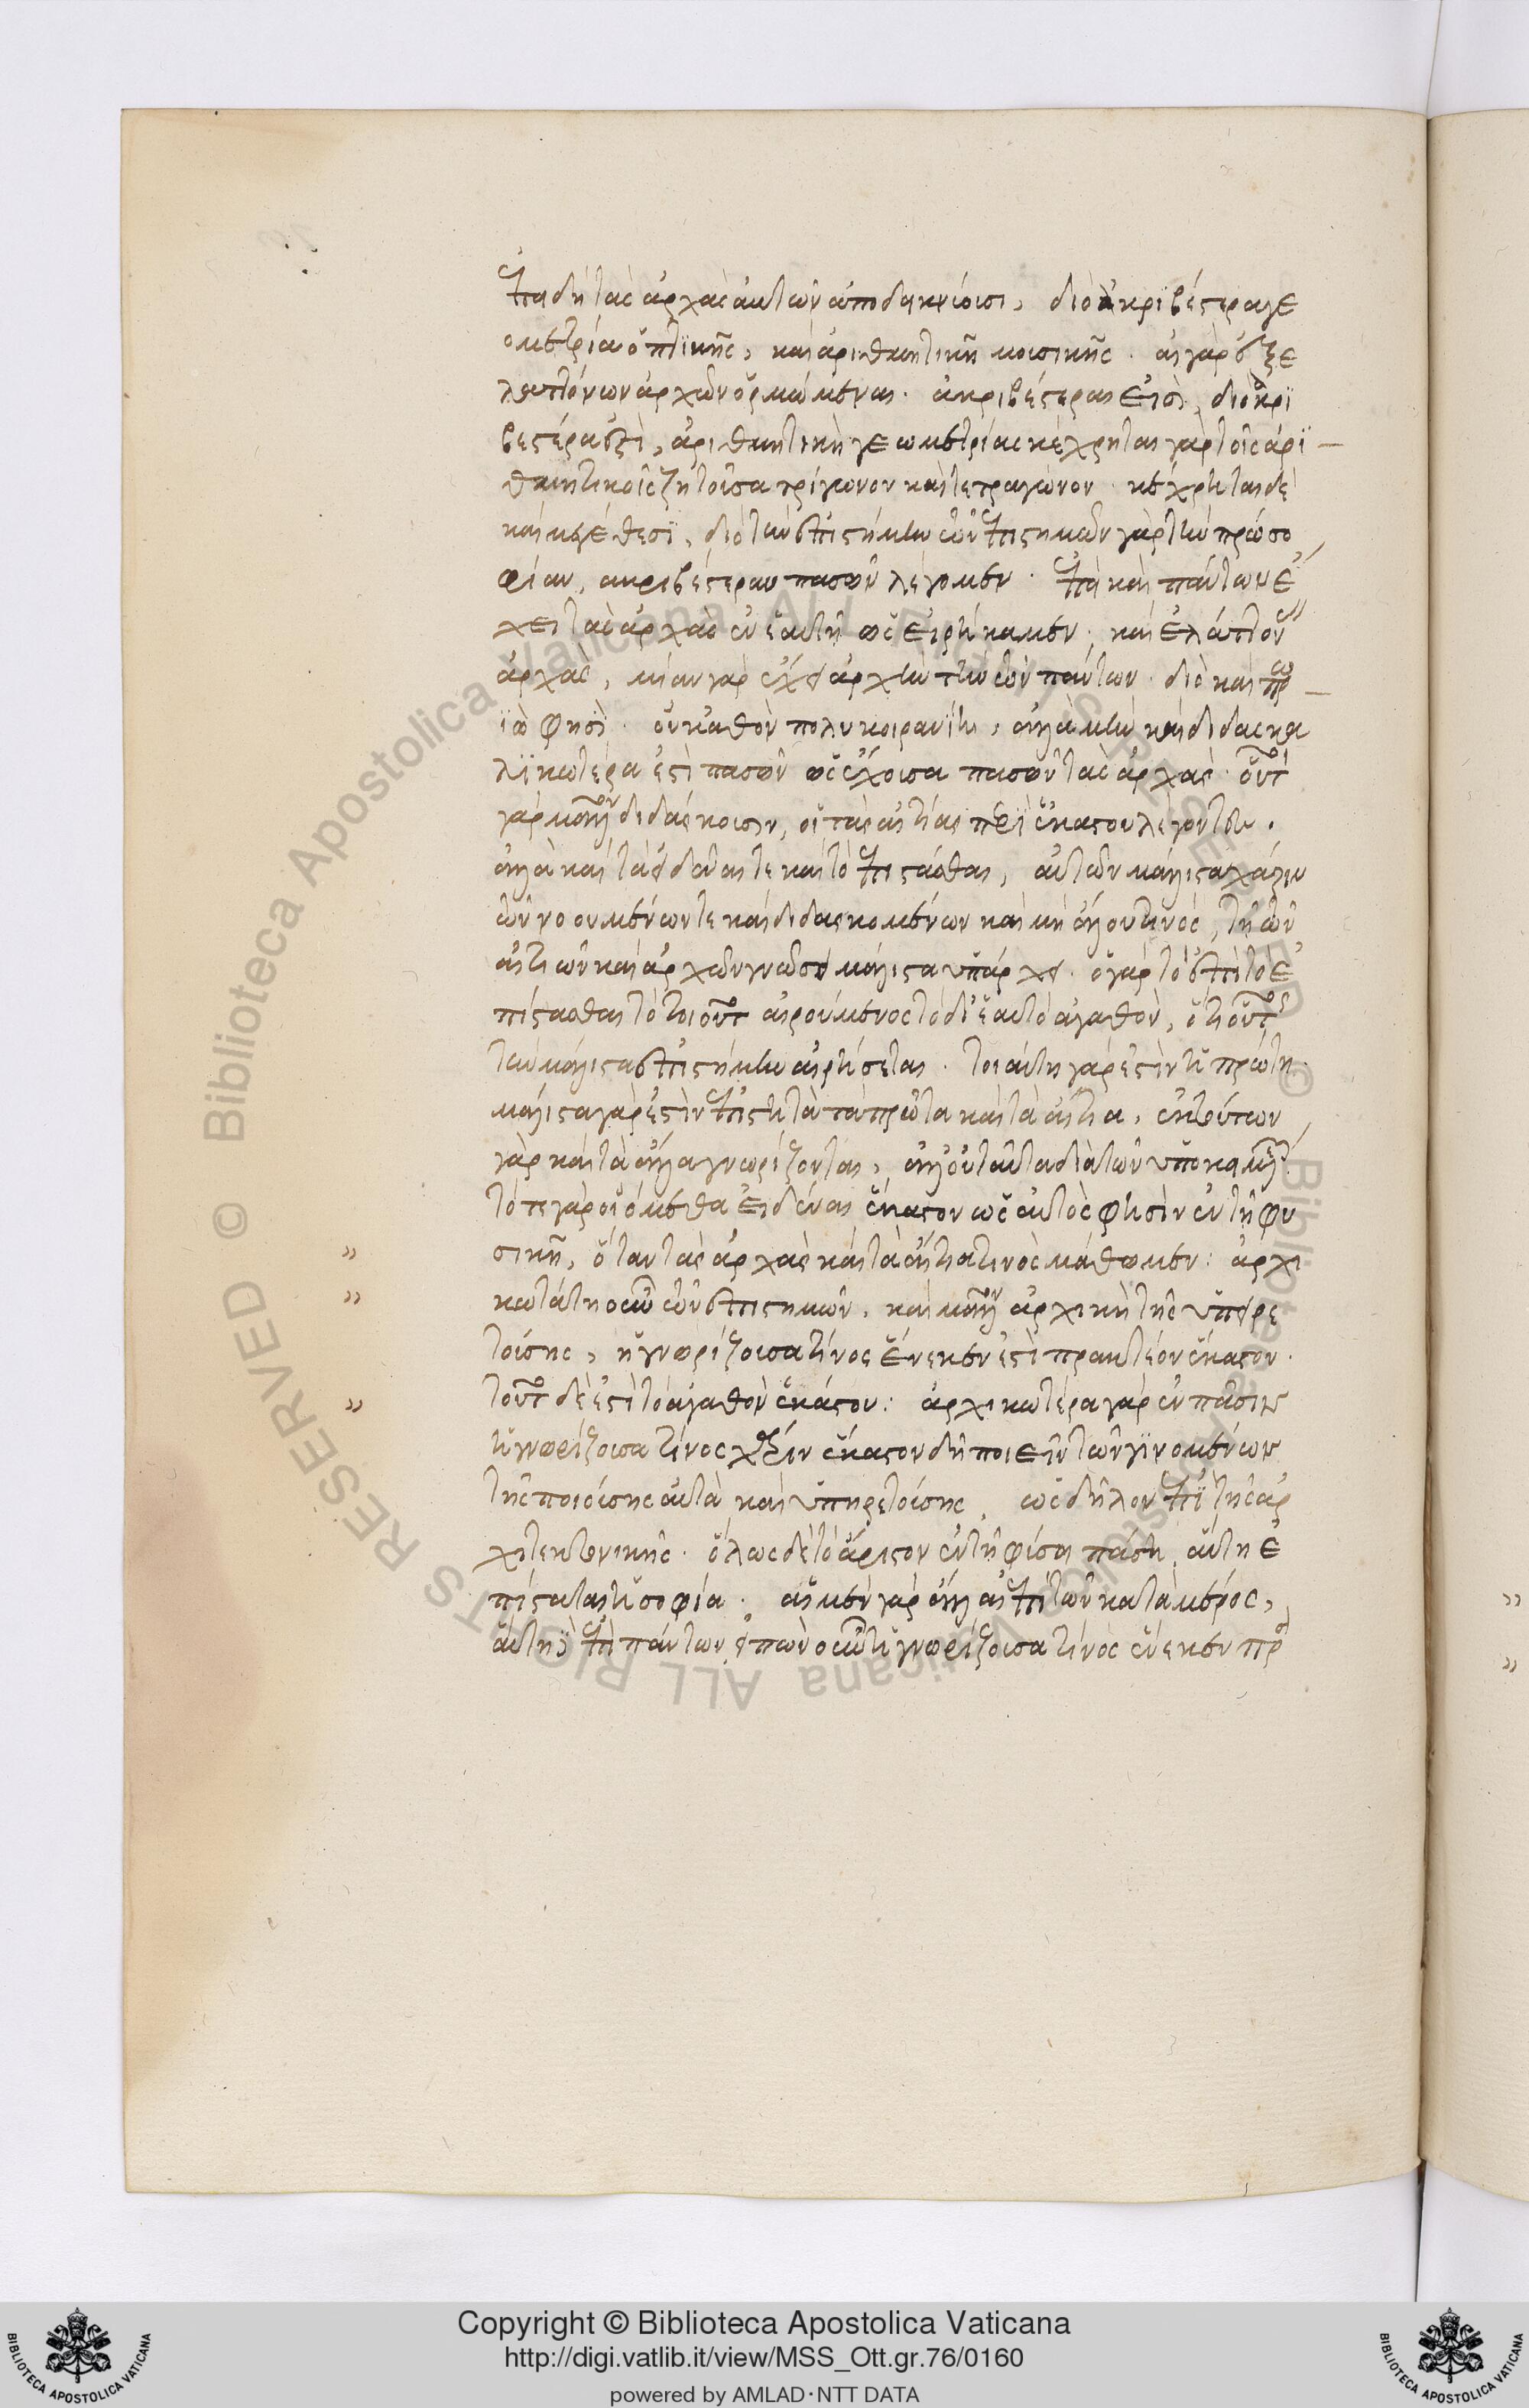 ἐπειδὴ τὰς ἀρχὰς αὐτῶν ἀποδεικνύουσι, διὸ ἀκριβέστερα γε
ομετρία ὀπτικῆς, καὶ ἀριθμητικὴ μουσικῆς. αἱ γὰρ ἐξ ἐ
λαττόνων ἀρχῶν ὁρμώμεναι ἀκριβέστεραι εἰσὶ, διὸ ἀκρι
βεστέρα ἐστὶ, ἀριθμητικὴ γεωμετρίας κέχρηται γὰρ τοῖς ἀρι
θμητικοῖς ζητοῦσα τρίγωνον καὶ τετράγωνον. κέχρηται δὲ
καὶ μεγέθεσι, διὸ τὴν ἐπιστήμην τῶν ἐπιστημῶν γὰρ τὴν πρώ σο
φίαν, ἀκριβέστεραν πασῶν λέγομεν. ἐπεὶ καὶ πάντων ἔ
χει τὰς ἀρχὰς ἐν ἑαυτῇ ὡς εἰρήκαμεν, καὶ ἐλάττον
ἀρχάς, μίαν γὰρ ἔχει ἀρχὴν τὴν τῶν πάντων. διὸ καὶ
φησὶ. οὐκ ἀγαθὸν πολυκοιρανίη, ἀλλὰ μὴν καὶ διδασκα
λικωτέρα ἐστὶ πασῶν ὡς ἔχουσα πασῶν τὰς ἀρχάς. οὗτοι
γὰρ μᾶλλον διδάσκουσιν, οἱ τὰς αἰτίας περὶ ἑκάστου λέγοντες.
ἀλλὰ καὶ τὸ εἰδέναι τε καὶ τὸ ἐπίστασθαι, αὐτῶν μάλιστα χάριν
τῶν νοουμένων τε καὶ διδασκομένων καὶ μὴ ἄλλου τινὸς, τῇ τῶν
αἰτιῶν καὶ ἀρχῶν γνώσει μάλιστα ὑπάρχει. ὁ γὰρ τὸ ἐπὶ τὸ ἐ
πίστασθαι τὸ τοιοῦτ αἱρούμενος τὸ δι' ἑαυτὸ ἀγαθὸν, ὅτι οὗτος
τὴν μάλιστα ἐπιστήμην αἱρήσεται. τοιαύτη γάρ ἐστὶν ἡ πρώτη.
μάλιστα γάρ ἐστιν ἐπιστητὰ τὰ πρῶτα καὶ τὰ αἴτια, ἐκ τούτων
γὰρ καὶ τὰ ἄλλα γνωρίζονται, ἀλλ' οὐ ταῦτα διὰ τῶν ὑποκειμέν
τότε γὰρ οἰόμεθα εἰδέναι ἕκαστον ὡς αὐτὸς φησὶν ἐν τῇ φυ
σικῇ, ὅταν τὰς ἀρχὰς καὶ τὰ αἴτια τινὸς μάθωμεν: ἀρχι
κωτάτη οὖν τῶν ἐπιστημῶν, καὶ μᾶλλον ἀρχικὴ τῆς ὑπηρε
τούσης, ἡ γνωρίζουσα τίνος ἕνεκέν ἐστὶ πρακτέον ἕκαστον.
τοῦτο δέ ἐστὶ τὸ ἀγαθὸν ἑκάστου: ἀρχικωτέρα γὰρ ἐν πᾶσιν
ἡ γνωρίζουσα τίνος χάριν ἕκαστον δεῖ ποιεῖν τῶν γινομένων
τῆς ποιούσης αὐτὰ καὶ ὑπηρετούσης, ὡς δῆλον ἐπὶ τῆς ἀρ
χιτεκτονικῆς. ὅλως δὲ τὸ ἄριστον ἐν τῇ φύσει πάσῃ, αὕτη ἐ
πίσταται ἡ σοφία. αἱ μὲν γὰρ ἄλλαι ἐπὶ τῶν κατὰ μέρος,
αὕτη ἐπὶ πάντων, εἰπὼν οὖν ἡ γνωρίζουσα τίνος ἕνεκεν πρ
Copyright © Biblioteca Apostolica Vaticana
http://digi.vatlib.it/view/MSS_Ott.gr.76/0160
powered by AMLAD·NTT DATA